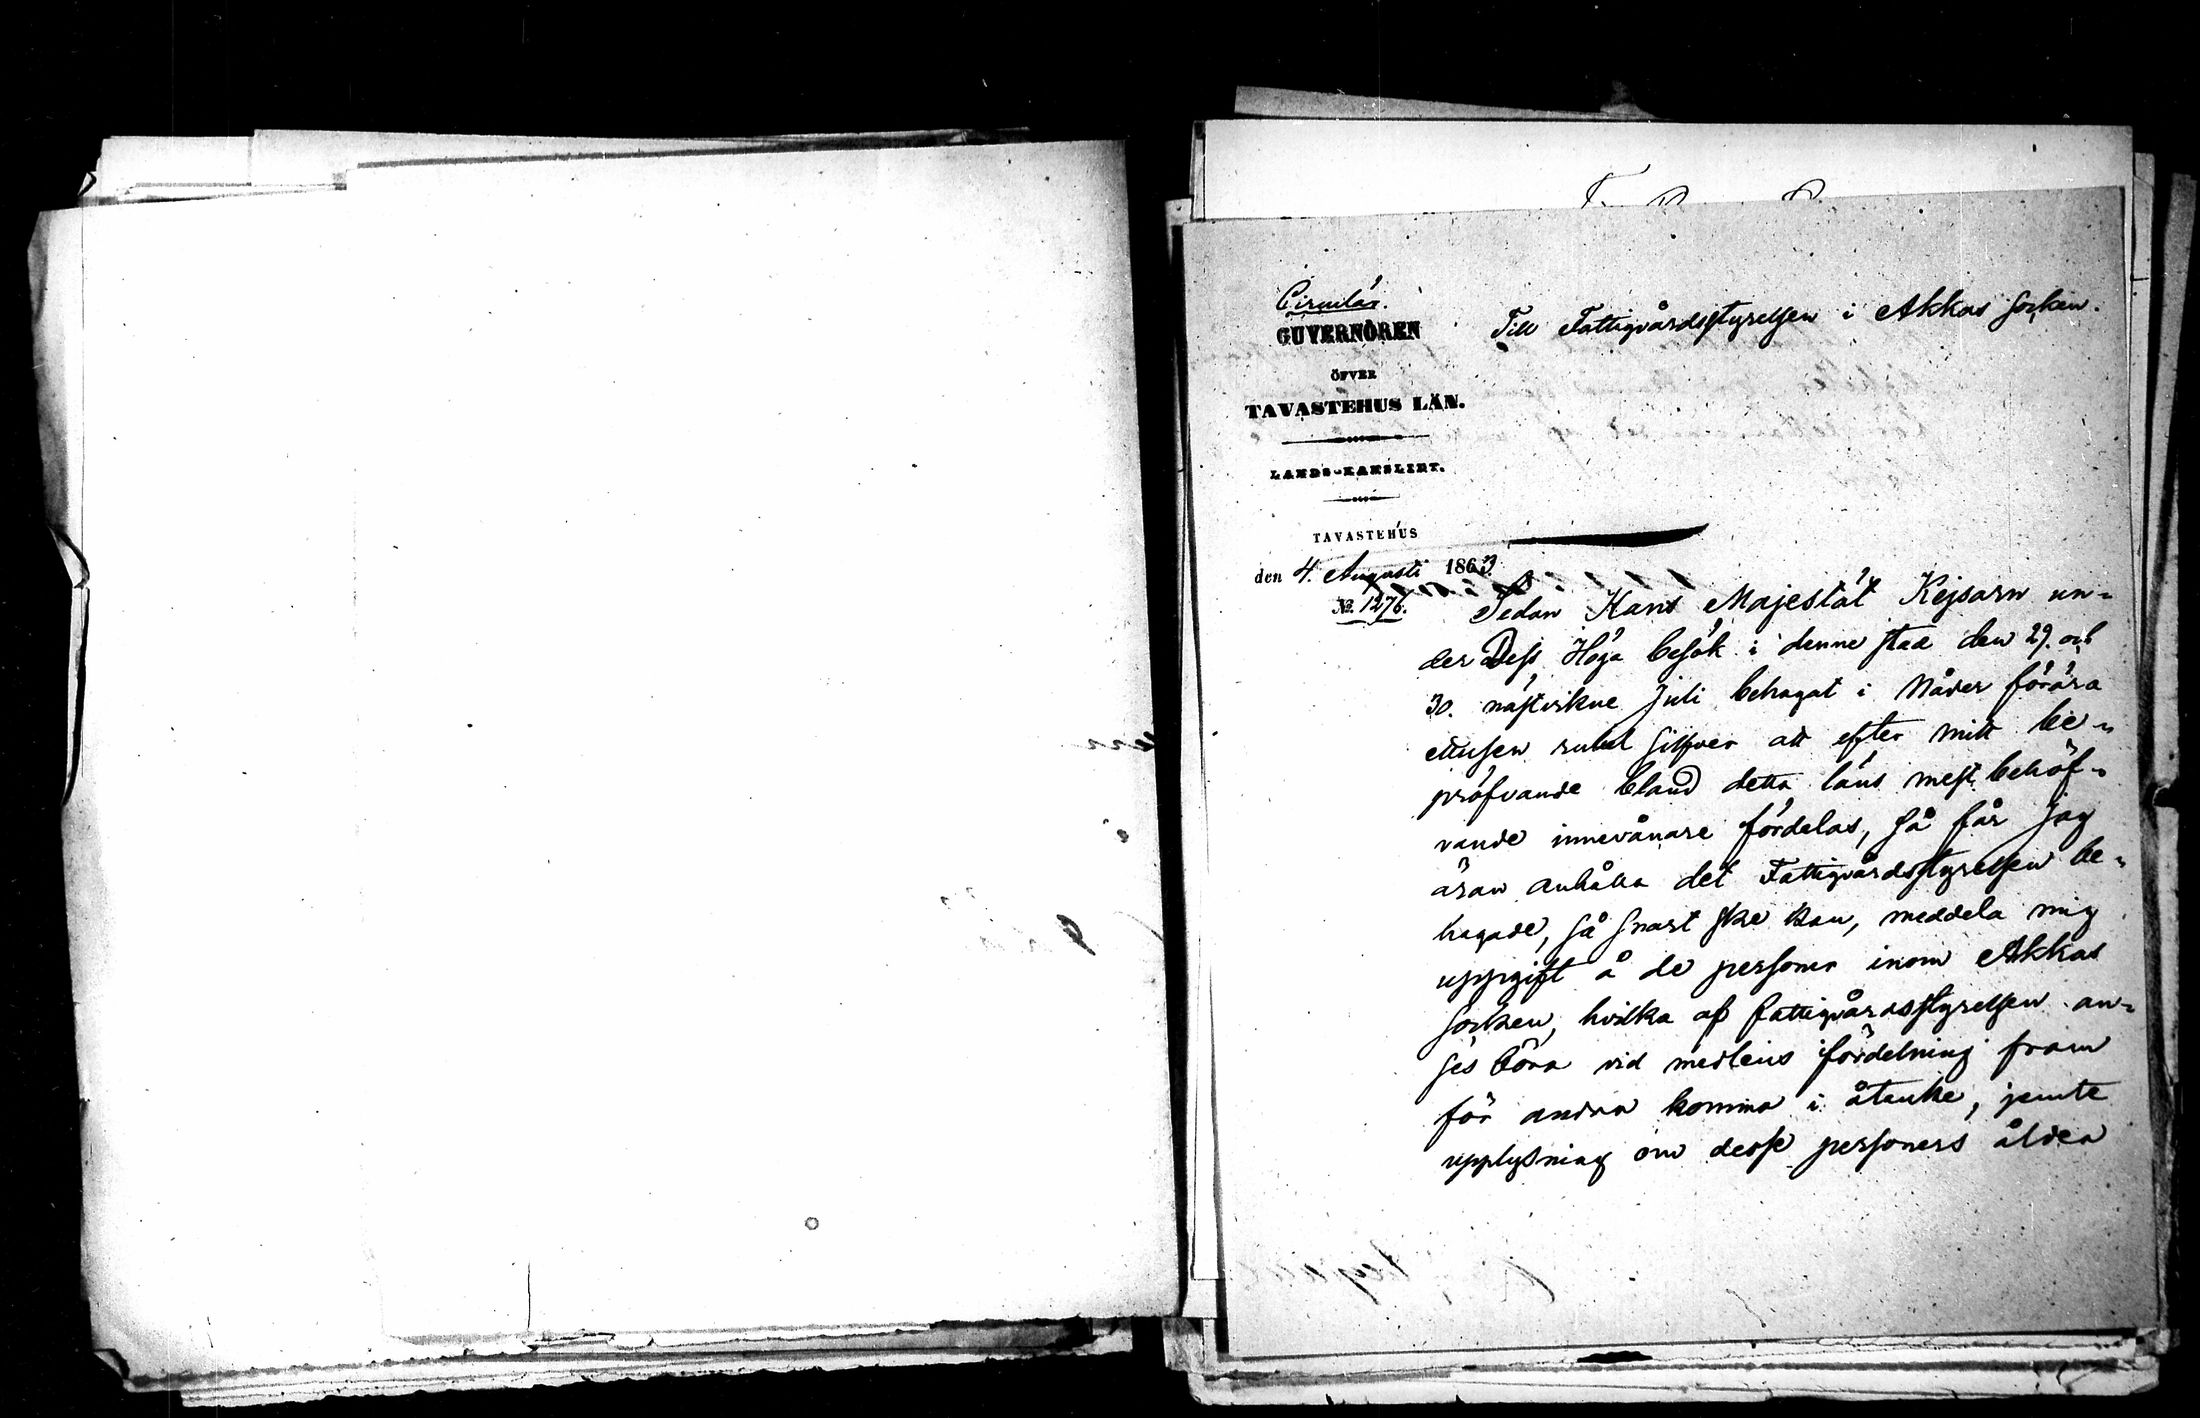 Circulär.
GUVERNÖREN
ÖFVER
TAVASTEHUS LÄN.
LANDS-KANSLIET.
TAVASTEHUS
den 4. Augusti 1863.
No. 1276.
Till Fattigvårdsstyrelsen i Akkas socken.
Sedan Hans Majestät Kejsarn un-
der Dess Höga besök i denne stad den 29. och
30. nästvikne Juli behagat i Nåder förära
ettusen rubel silfver att efter mitt be-
pröfvande bland detta läns mest behöf-
vande innevånare fördelas, så får jag
äran anhålla det Fattigvårdsstyrelsen be-
hagade, så snart ske kan, meddela mig
uppgift å de personer inom Akkas
socken, hvilka af fattigvårdsstyrelsen an-
ses böra vid medlens fördelning fram
för andra komma i åtanke, jemte
upplysning om desse personers ålder